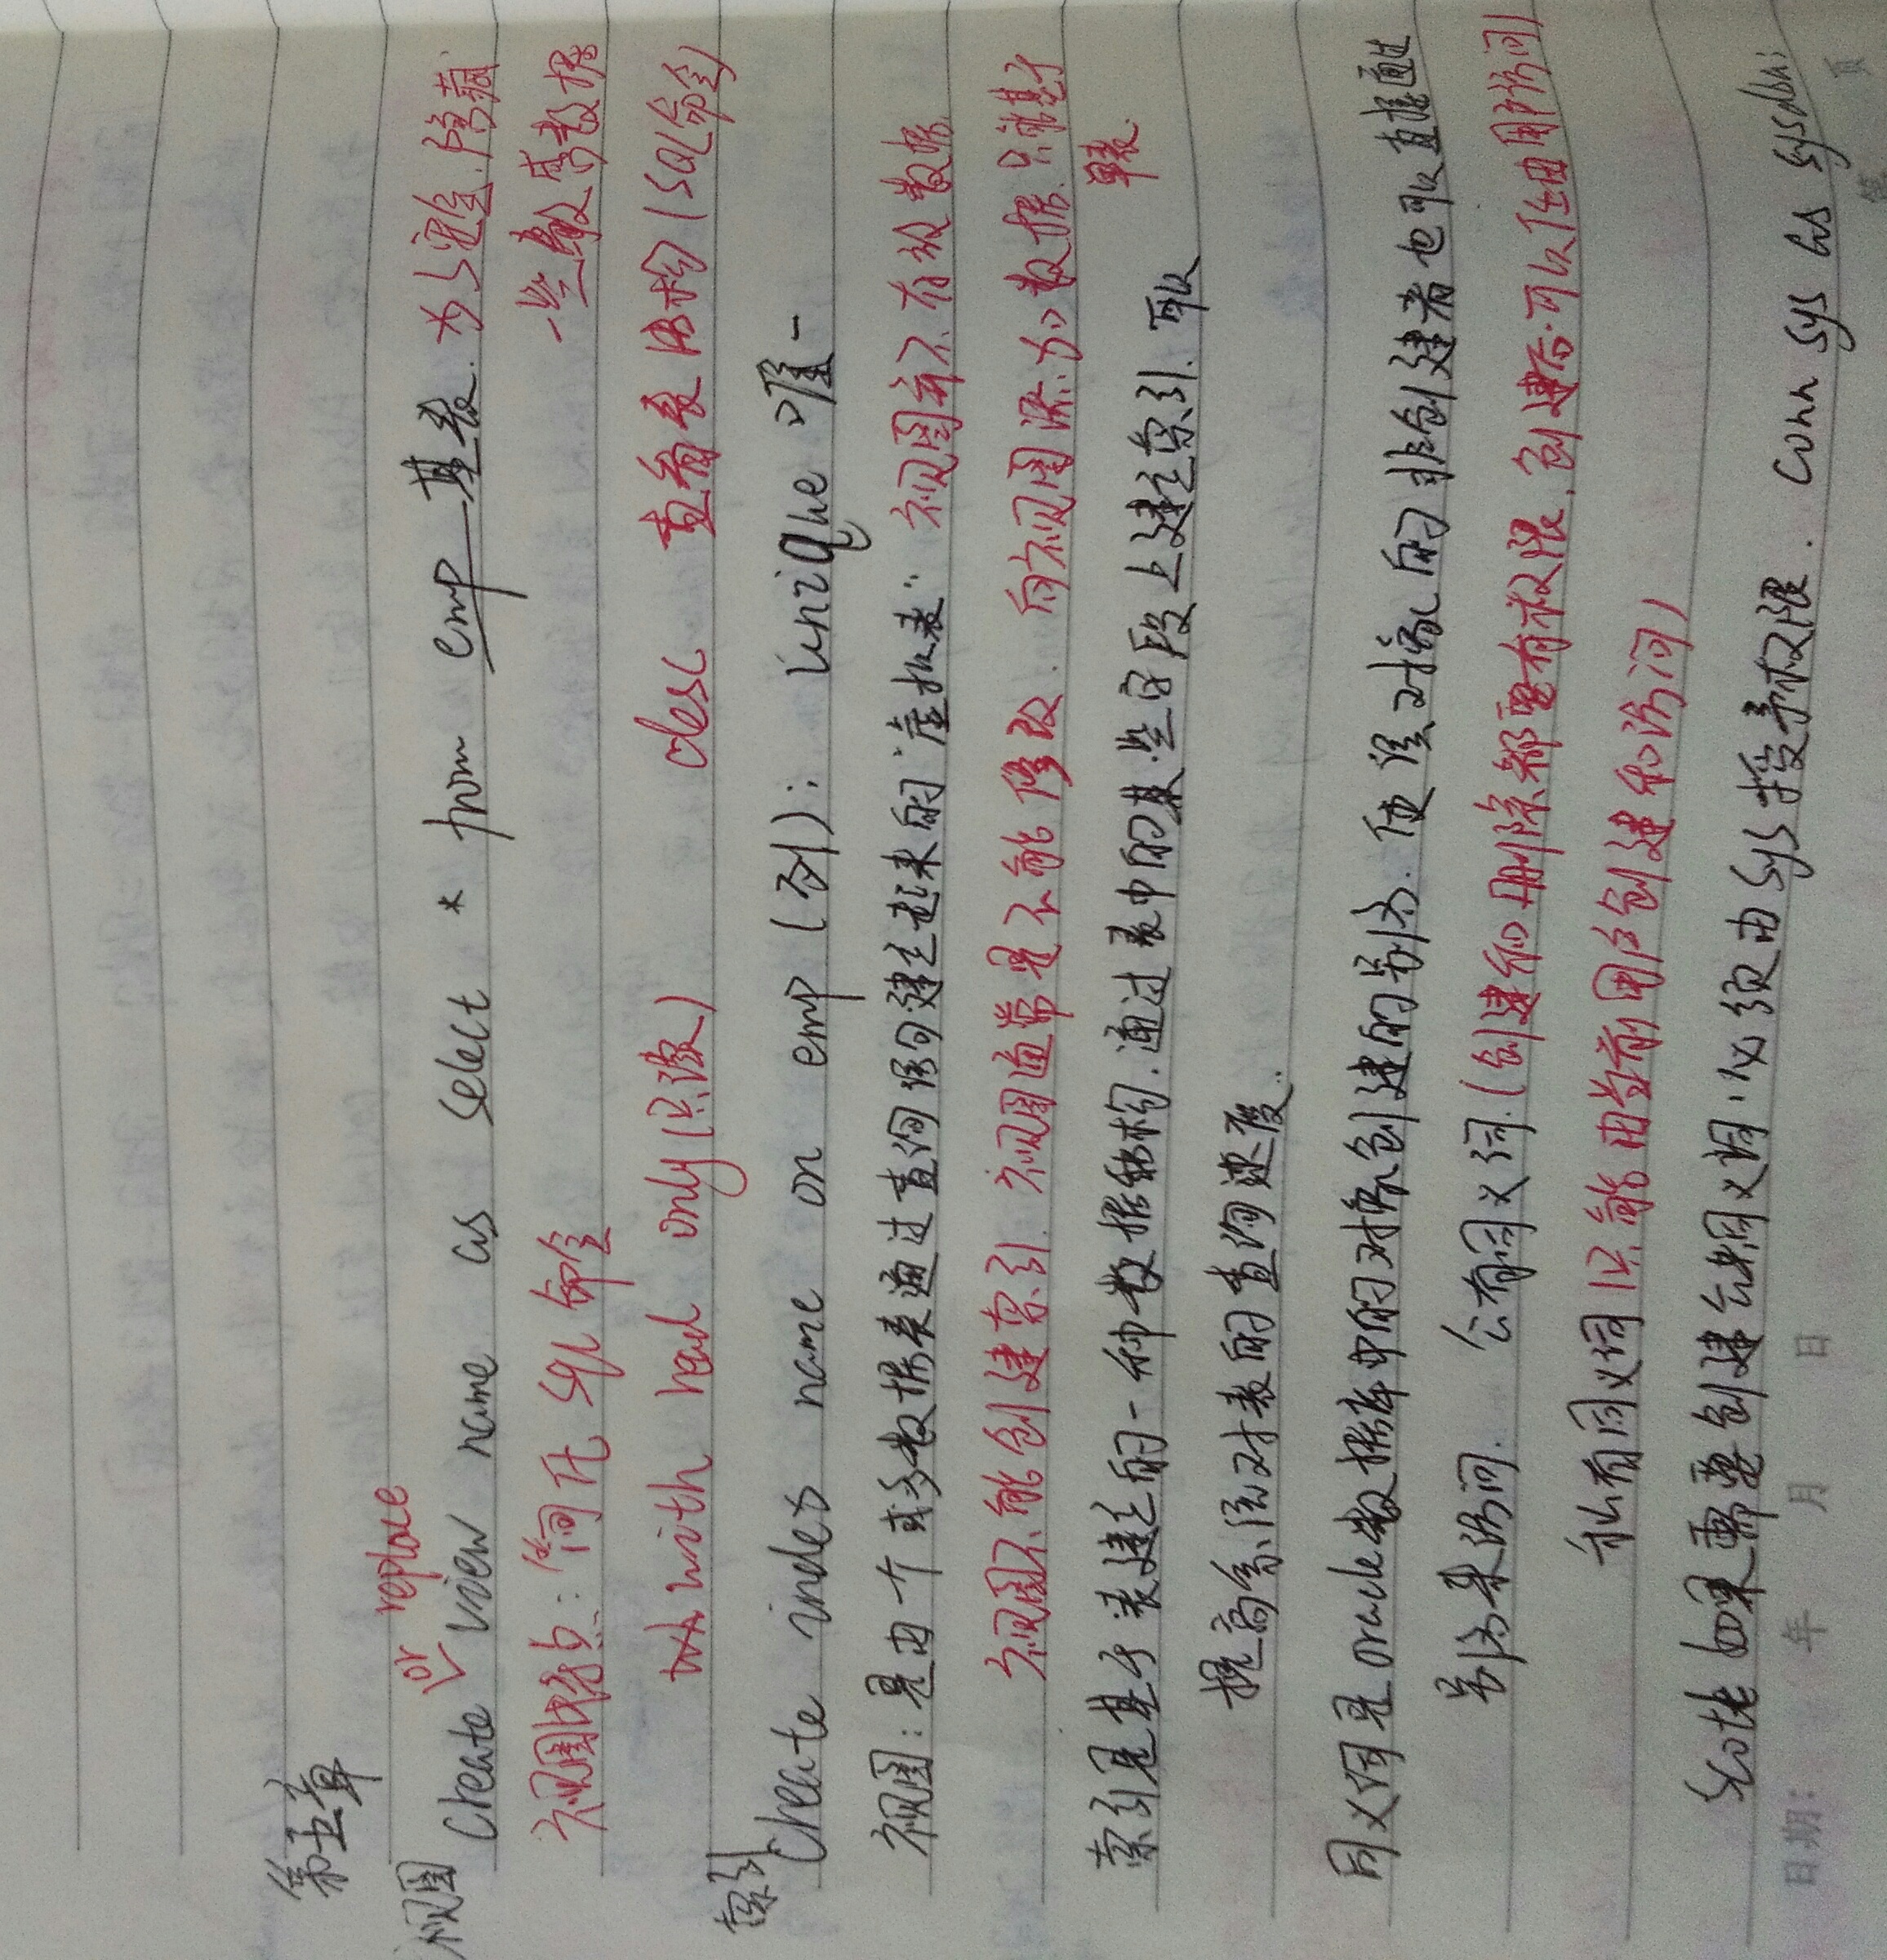 第五章
视图 Create or replace view name as select * from emp 基表. 为了安全.隐藏
视图好处: 简化 sql 命令 一些敏感数据
with read only(只读) desc 查看表结构 (SQL命令)
索引 Create index name on emp (列); unique 唯一
视图: 是由一个或多数据表通过查询语句建立起来的"虚拟表". 视图并不存放数据
视图不能创建索引. 视图通常是不能修改. 向视图添加数据.只能基于单表.
索引是基于表建立的一种数据结构.通过表中的某些字段上建立索引. 可以
提高系统对表的查询速度.
同义词是oracle数据库中的对象创建的别名. 使得对象的非创建者也可以直接通过
别名来访问. 公有同义词.(创建和删除都要有权限. 创建后.可以任由用户访问)
私有同义词(只能由当前用户创建和访问)
scott 如果需要创建公共同义词.必须由sys授予权限. conn sys as sysdba;
日期: 年 月 日
页